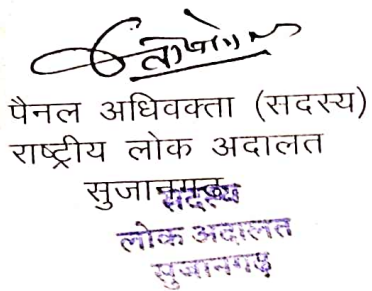 पैनल अधिवक्ता (सदस्य)
राष्ट्रीय लोक अदालत
सुजानगढ़
सदस्य
लोक अदालत
सुजानगढ़